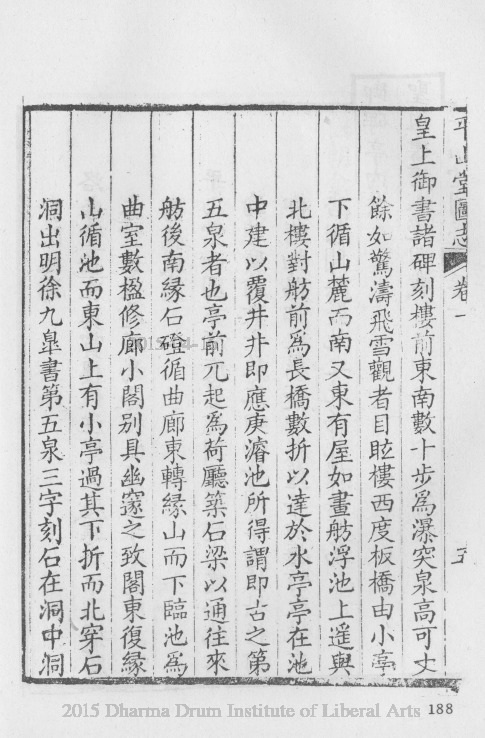 平山堂圖志 卷一 五
皇上御書諸碑刻樓前東南數十步為瀑突泉高可丈
餘如驚濤飛雪觀者目眩樓西度板橋由小亭
下循山麓而南又東有屋如畫舫浮池上遙與
北樓對舫前為長橋數折以達於水亭亭在池
中建以覆井井即應庚濬池所得謂即古之第
五泉者也亭前兀起為荷廳築石梁以通往來
舫後南緣石磴循曲廊東轉緣山而下臨池為
曲室數楹修廊小閣別具幽窱之致閣東復緣
山循池而東山上有小亭過其下折而北穿石
洞出明徐九臯書第五泉三字刻石在洞中洞
2015 Dharma Drum Institute of Liberal Arts 188